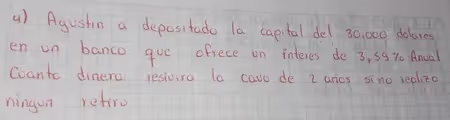 4) Agustin a depositado la capital del 30,000 dolares
en un banco que ofrece un interes de 3,59% Anual
Cuanto dinero resivira lo cavo de 2 años si no realizo
ningun retiro